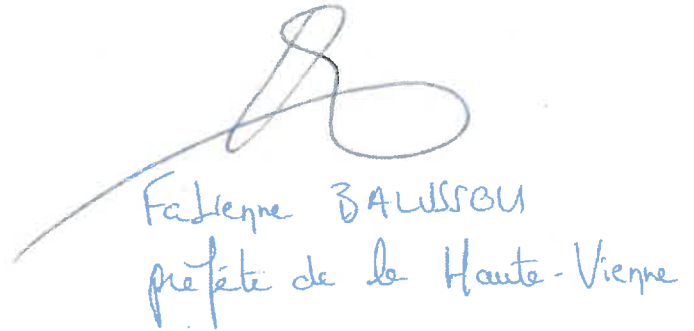 Fabienne BALUSSOU
préfète de la Haute-Vienne